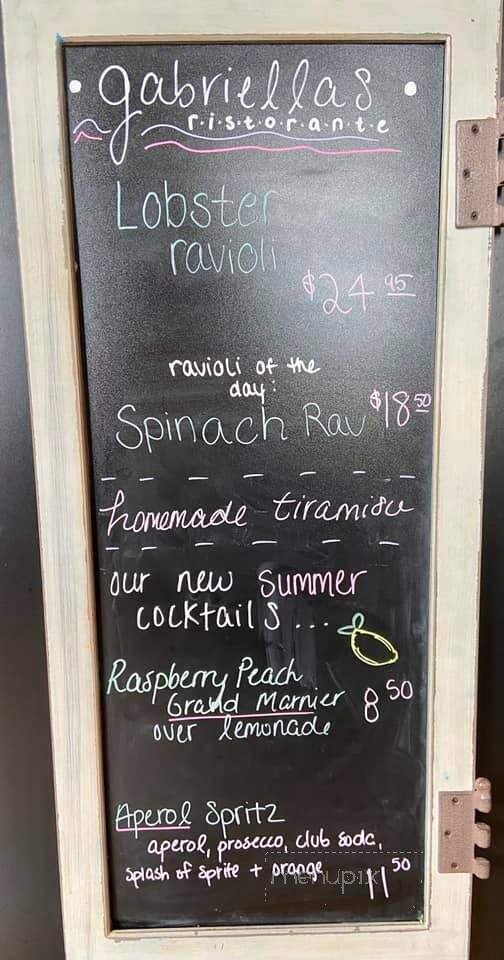 • gabriellas •
r·i·s·t·o·r·a·n·t·e
Lobster
ravioli
$24 95
ravioli of the
day:
Spinach Rav $18 50
homemade tiramisu
our new summer
cocktails...
Raspberry Peach
Grand Marnier 8 50
over lemonade
Aperol Spritz
aperol, prosecco, club soda,
splash of sprite + orange
11 50
menupix